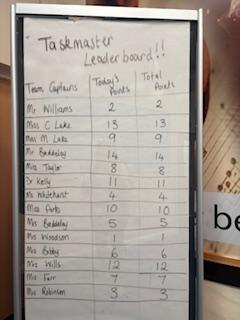 Taskmaster
Leaderboard!!
Team Captains Today's Points Total Points
Mr Williams 2 2
Miss C Lake 13 13
Miss M Lake 9 9
Mr Baddeley 14 14
Miss Taylor 8 8
Dr Kelly 11 11
Ms Whitehunt 4 4
Miss 10 10
Mrs Baddeley 5 5
Mrs Woodson 1 1
Mrs Bobby 6 6
Mrs Wills 12 12
Mrs Farr 7 7
Mrs Robinson 3 3
be